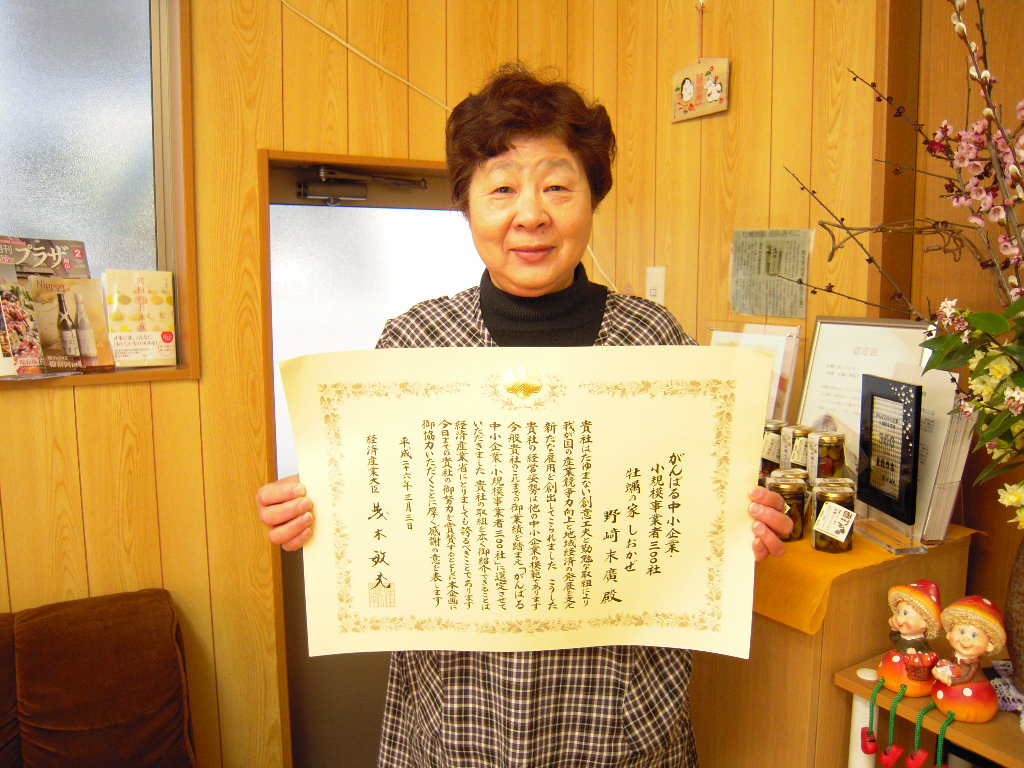 がんばる中小企業
小規模事業者三〇〇社
牡蠣の家 しおかぜ
野﨑末廣 殿
貴社はたゆまない創意工夫と勤勉な取組により
我が国の産業競争力向上と地域経済の発展を支え
新たな雇用を創出してこられました こうした
貴社の経営姿勢は他の中小企業の模範であります
今般貴社のこれまでの御業績を踏まえ「がんばる
中小企業・小規模事業者三〇〇社」に選定させて
いただきました 貴社の取組を広く御紹介できることは
経済産業省にとりましても誇るべきことであります
今日までの貴社の御努力を賞賛するとともに本企画に
御協力いただくことに厚く感謝の意を表します
平成二十六年三月三日
経済産業大臣 茂木敏充
プラザ
2
Nippon
認定証